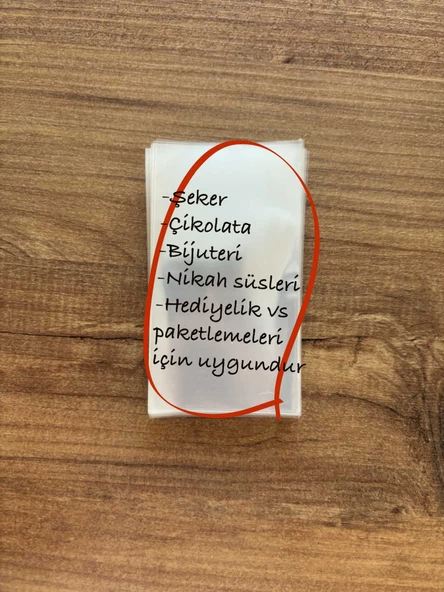 -Şeker
-Çikolata
-Bijuteri
-Nikah süsleri
-Hediyelik vs
paketlemeleri
için uygundur